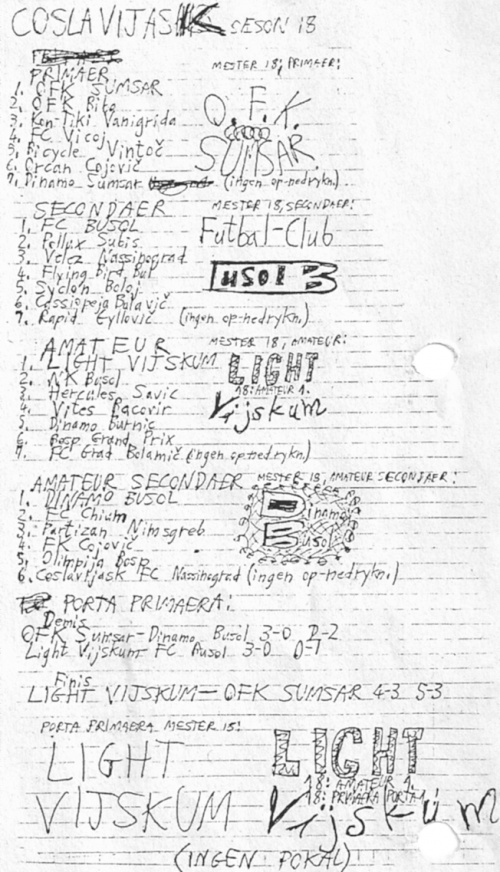 COSLAVIJASK SESON 18
PRIMAER
1. OFK SUMSAR
2. OFK Rita
3. Kon-Tiki Vanigrida
4. FC Vicoj
5. Bicycle Vintoč
6. Orcan Cojovič
7. Dinamo Sumsar (ingen op-nedrykn.)
MESTER 18, PRIMAER:
O.F.K.
SUMSAR
SECONDAER
1. FC BUSOL
2. Pollux Subis
3. Velez Nassinograd
4. Flying Bird Bul
5. Syclon Boloj
6. Cassiopeja Bolavič
7. Rapid Cyllovič (ingen op-nedrykn.)
MESTER 18, SECONDAER:
Futbal-Club
Busol
AMATEUR
1. LIGHT VIJSKUM
2. NK Busol
3. Hercules Savic
4. Vites Racovir
5. Dinamo Burnic
6. Bosp Grand Prix
7. FC Grad Bolamič (ingen op-nedrykn.)
MESTER 18, AMATEUR:
LIGHT
18: AMATEUR 1.
Vijskum
AMATEUR SECONDAER
1. DINAMO BUSOL
2. FC Chium
3. Partizan Nimsgreb
4. FK Cojovič
5. Olimpija Bosp
6. Coslavijask FC Nassinograd (ingen op-nedrykn.)
MESTER 18, AMATEUR SECONDAER:
Dinamo
Busol
PORTA PRIMAERA:
Demis
OFK Sumsar-Dinamo Busol 3-0 2-2
Light Vijskum-FC Busol 3-0 0-1
Finis
LIGHT VIJSKUM-OFK SUMSAR 4-3 5-3
PORTA PRIMAERA MESTER 15:
LIGHT
VIJSKUM
LIGHT
18: AMATEUR 1.
18: PRIMAERA PORTA 1.
Vijskum
(INGEN POKAL)